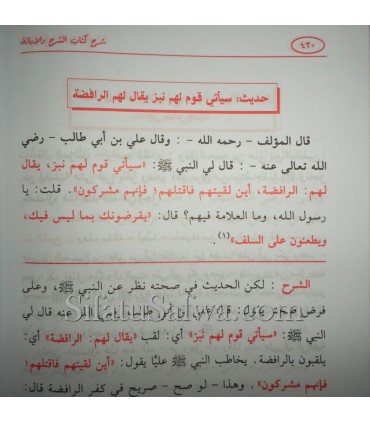 ٤٢٠
شرح كتاب الشرح والإبانة
حديث: سيأتي قوم لهم نبز يقال لهم الرافضة
قال المؤلف - رحمه الله - : وقال علي بن أبي طالب - رضي
الله تعالى عنه - : قال لي النبي ﷺ: «سيأتي قوم لهم نبز، يقال
لهم: الرافضة، أين لقيتهم فاقتلهم؛ فإنهم مشركون». قلت: يا
رسول الله، وما العلامة فيهم؟ قال: «يقرضونك بما ليس فيك،
ويطعنون على السلف»(١).
الشرح : لكن الحديث في صحته نظر عن النبي ﷺ، وعلى
فرض صحته يقول: قال علي بن أبي طالب: قال لي
النبي ﷺ: «سيأتي قوم لهم نبز» أي: لقب «يقال لهم: الرافضة» أي:
يلقبون بالرافضة. يخاطب النبي ﷺ عليًّا يقول: «أين لقيتهم فاقتلهم؛
فإنهم مشركون». وهذا - لو صح - صريح في كفر الرافضة قال: